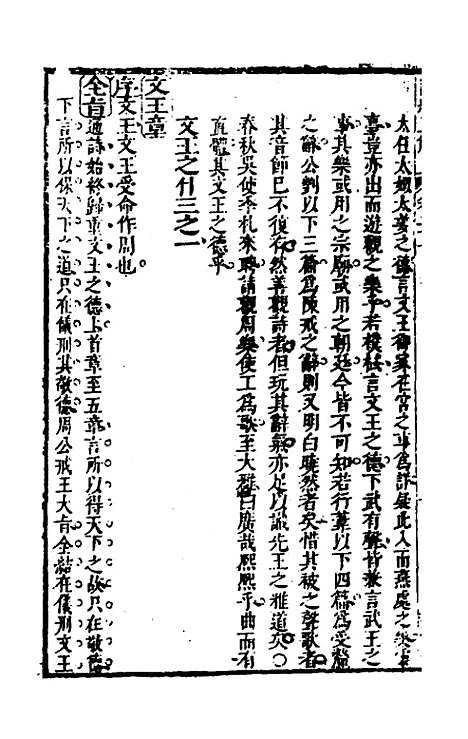 太任太姒太姜之德言文王
臺臺亦出而遊觀之樂乎若棫樸言文王之德下武有聲皆兼言武王之
事其樂或用之宗廟或用之朝廷今皆不可知若行葦以下四篇爲受釐
之辭公劉以下三篇爲陳戒之辭則又明白曉然者矣惜其被之聲歌者
其音節已不復存然善觀詩者但玩其辭氣亦足以識先王之雅道矣○
春秋吳使季札來聘請觀周樂使工爲歌至大雅曰廣哉熙熙乎曲而有
直體其文王之德乎
文王之什三之一
文王章
序文王文王受命作周也
全旨通詩始終歸重文王之德上首章至五章言所以得天下之故只在敬德
下言所以保天下之道只在儀刑其敬德周公戒王大旨全結在儀刑文王